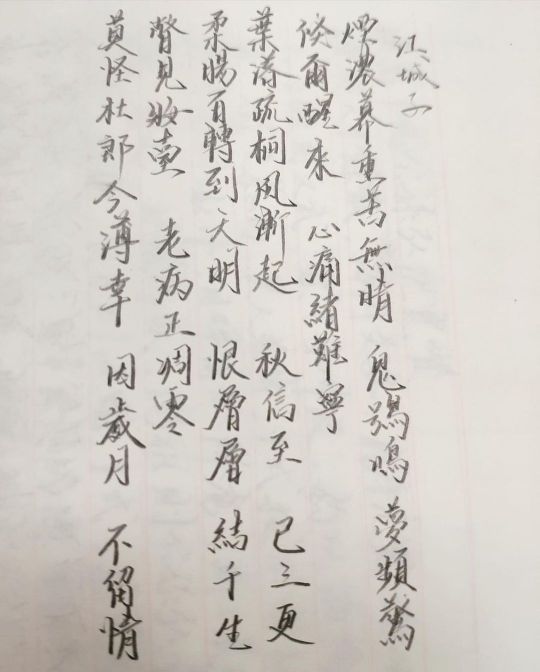 江城子
煙濃暮重苦無晴 鬼鴞鳴 夢頻驚
倏爾醒來 心痛緒難寧
葉落疏桐風漸起 秋信至 已三更
柔腸百轉到天明 恨層層 結千生
瞥見妝臺 老病正凋零
莫怪杜郎今薄幸 因歲月 不留情